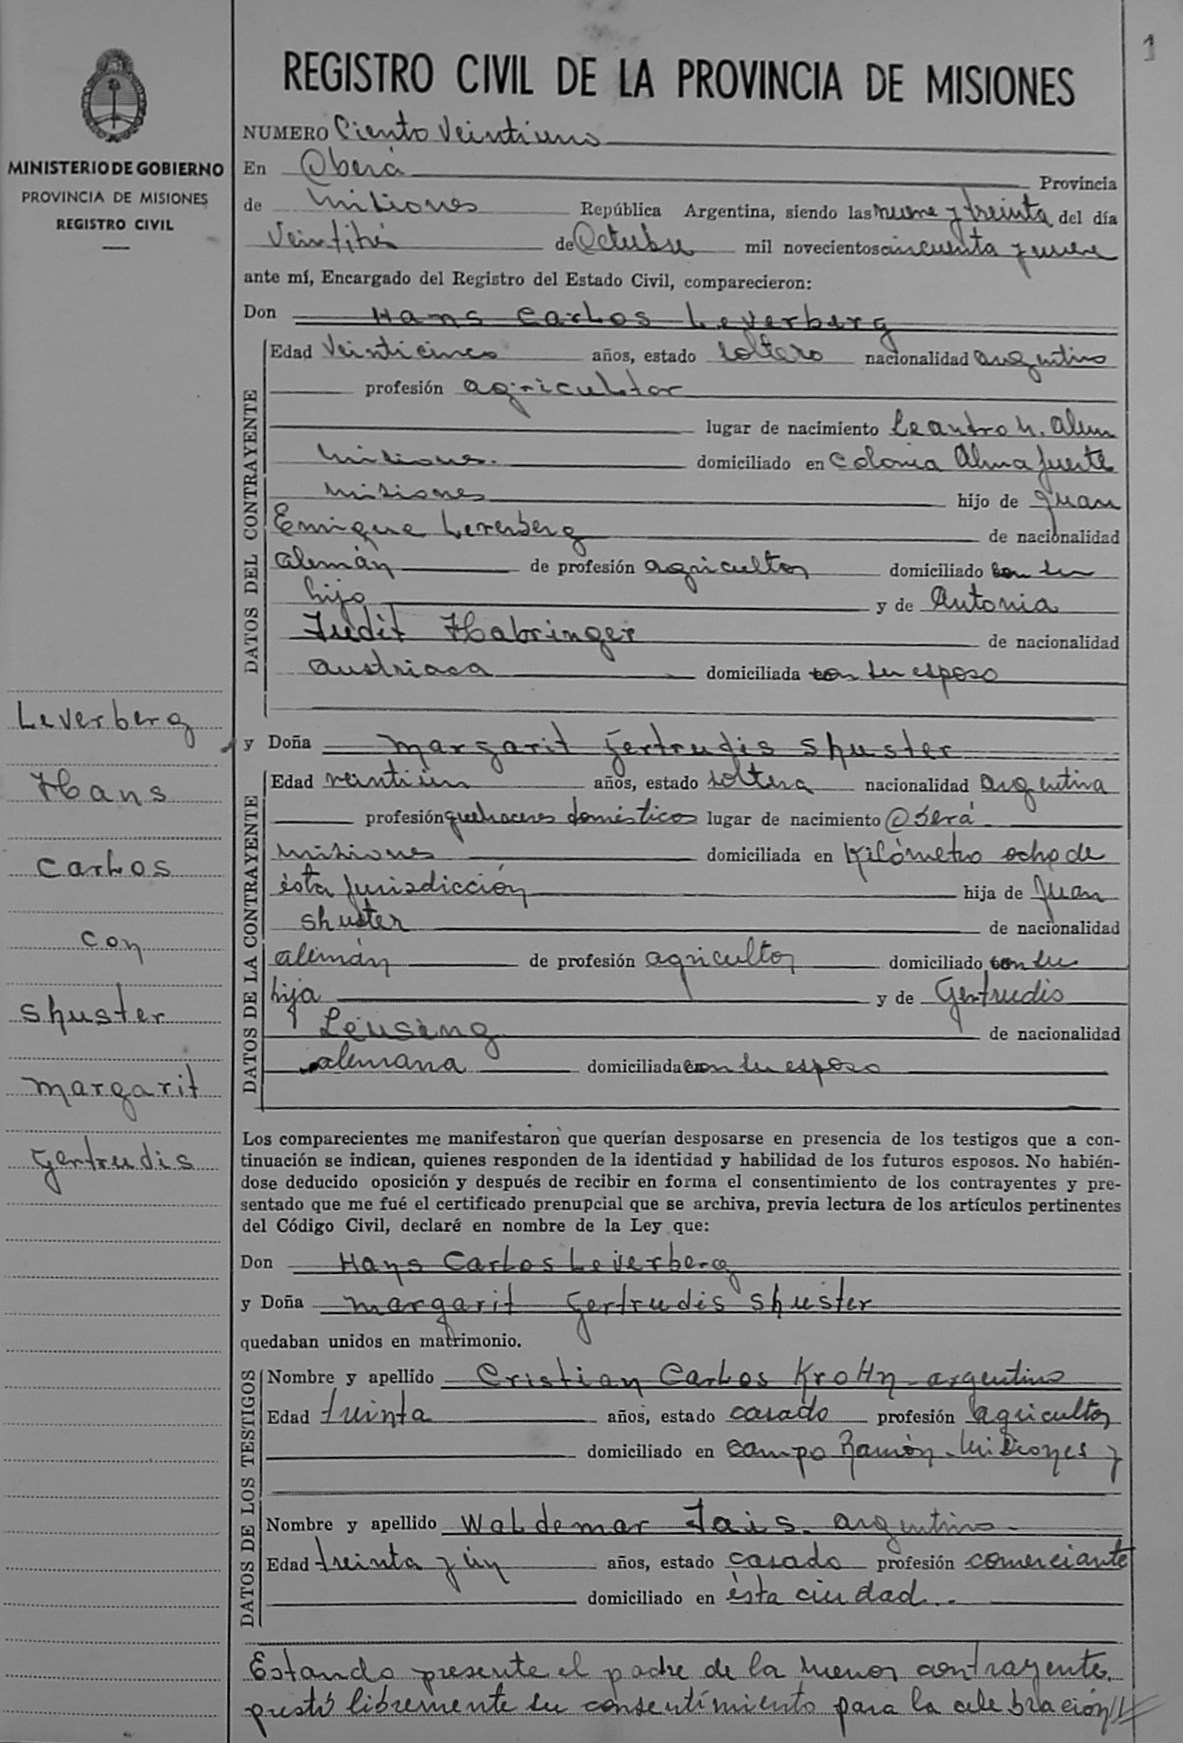 1
REGISTRO CIVIL DE LA PROVINCIA DE MISIONES
MINISTERIO DE GOBIERNO
PROVINCIA DE MISIONES
REGISTRO CIVIL
NUMERO Ciento Veintiuno
En Oberá Provincia
de Misiones República Argentina, siendo las nueve y treinta del día
Veintitrés de Octubre mil novecientos cincuenta y nueve
ante mí, Encargado del Registro del Estado Civil, comparecieron:
Don Hans Carlos Leverberg
DATOS DEL CONTRAYENTE
Edad Veinticinco años, estado soltero nacionalidad argentino
profesión agricultor
lugar de nacimiento Leandro N. Alem
Misiones. domiciliado en Colonia Almafuerte
Misiones hijo de Juan
Enrique Leverberg de nacionalidad
alemán de profesión agricultor domiciliado con su
hijo y de Antonia
Judit Habringer de nacionalidad
austriaca domiciliada con su esposo
y Doña Margarit Gertrudis Shuster
DATOS DE LA CONTRAYENTE
Edad veintiún años, estado soltera nacionalidad argentina
profesión quehaceres domésticos lugar de nacimiento Oberá
Misiones domiciliada en Kilómetro ocho de
ésta jurisdicción hija de Juan
Shuster de nacionalidad
alemán de profesión agricultor domiciliado con su
hija y de Gertrudis
Leusing de nacionalidad
alemana domiciliada con su esposo
Leverberg
Hans
Carlos
con
Shuster
Margarit
Gertrudis
Los comparecientes me manifestaron que querían desposarse en presencia de los testigos que a con-
tinuación se indican, quienes responden de la identidad y habilidad de los futuros esposos. No habién-
dose deducido oposición y después de recibir en forma el consentimiento de los contrayentes y pre-
sentado que me fué el certificado prenupcial que se archiva, previa lectura de los artículos pertinentes
del Código Civil, declaré en nombre de la Ley que:
Don Hans Carlos Leverberg
y Doña Margarit Gertrudis Shuster
quedaban unidos en matrimonio.
DATOS DE LOS TESTIGOS
Nombre y apellido Cristian Carlos Krohn - argentino
Edad treinta años, estado casado profesión agricultor
domiciliado en Campo Ramón - Misiones y
Nombre y apellido Waldemar Jais - argentino -
Edad treinta y un años, estado casado profesión comerciante
domiciliado en ésta ciudad.-
Estando presente el padre de la menor contrayente,
prestó libremente su consentimiento para la celebración//